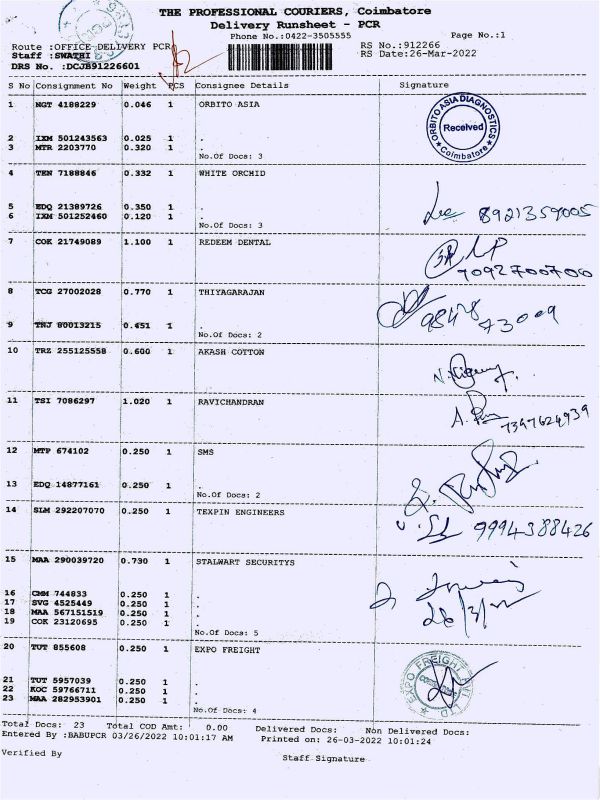 THE PROFESSIONAL COURIERS, Coimbatore
Delivery Runsheet - PCR
Phone No.:0422-3505555
Page No.:1
Route :OFFICE DELIVERY PCR
RS No.:912266
Staff :SWATHI
RS Date:26-Mar-2022
DRS No. :DCJB91226601
S No Consignment No Weight PCS Consignee Details Signature
1 NGT 4188229 0.046 1 ORBITO ASIA
ORBITO ASIA DIAGNOSTICS
Received
Coimbatore
2 IXM 501243563 0.025 1 .
3 MTR 2203770 0.320 1 .
No.Of Docs: 3
4 TEN 7188846 0.332 1 WHITE ORCHID
5 EDQ 21389726 0.350 1 .
6 IXM 501252460 0.120 1 .
8921359005
No.Of Docs: 3
7 COK 21749089 1.100 1 REDEEM DENTAL
7092700700
8 TCG 27002028 0.770 1 THIYAGARAJAN
98478 73009
9 TNJ 80013215 0.451 1 .
No.Of Docs: 2
10 TRZ 255125558 0.600 1 AKASH COTTON
11 TSI 7086297 1.020 1 RAVICHANDRAN
7397624939
12 MTP 674102 0.250 1 SMS
13 EDQ 14877161 0.250 1 .
No.Of Docs: 2
14 SLM 292207070 0.250 1 TEXPIN ENGINEERS
9994388426
15 MAA 290039720 0.730 1 STALWART SECURITYS
16 CMM 744833 0.250 1 .
17 SVG 4525449 0.250 1 .
18 MAA 567151519 0.250 1 .
19 COK 23120695 0.250 1 .
26/3/22
No.Of Docs: 5
20 TUT 855608 0.250 1 EXPO FREIGHT
EXPO FREIGHT
21 TUT 5957039 0.250 1 .
22 KOC 59766711 0.250 1 .
23 MAA 282953901 0.250 1 .
No.Of Docs: 4
Total Docs: 23 Total COD Amt: 0.00 Delivered Docs: Non Delivered Docs:
Entered By :BABUPCR 03/26/2022 10:01:17 AM Printed on: 26-03-2022 10:01:24
Verified By
Staff Signature